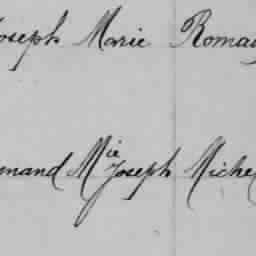 oseph Marie Romai
mand Mie Joseph Miche